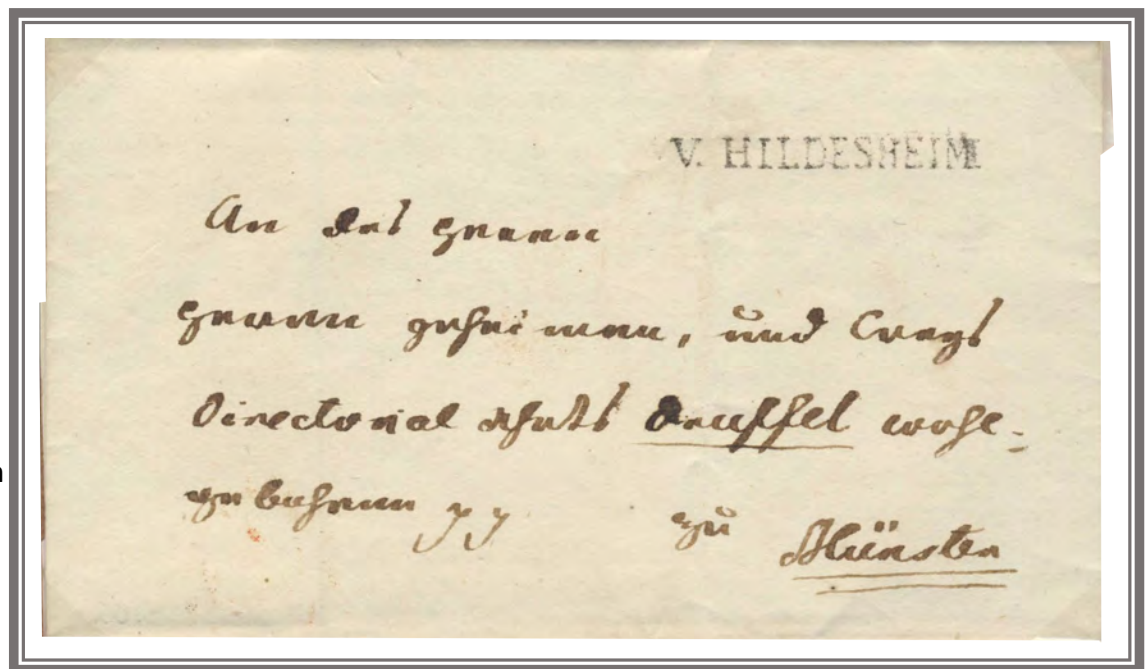 V. HILDESHEIM
An des Herren
Herren geheimen, und Creys
Directorial Rhats Druffel wohl-
gebohrnen
zu Münster
n